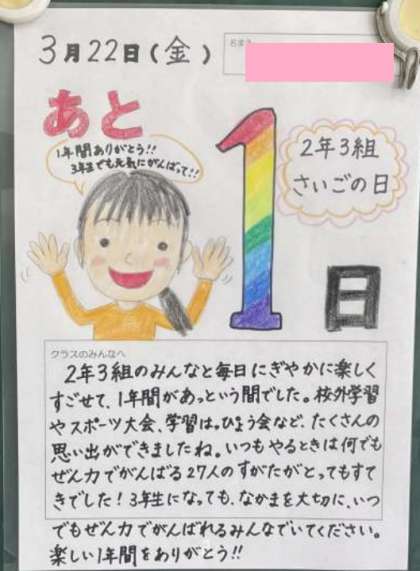 3月22日(金)
お名まえ
あと
1
日
1年間ありがとう!!
3年生でも元気にがんばって!!
2年3組
さいごの日
クラスのみんなへ
2年3組のみんなと毎日にぎやかに楽しく
すごせて、1年間があっという間でした。校外学習
やスポーツ大会、学習はっぴょう会など、たくさんの
思い出ができましたね。いつもやるときは何でも
ぜん力でがんばる27人のすがたがとってもすて
きでした!3年生になっても、なかまを大切に、いつ
でもぜん力でがんばれるみんなでいてください。
楽しい1年間をありがとう!!